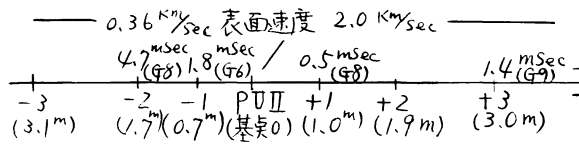 0.36 Km/Sec 表面速度 2.0 Km/Sec
4.7mSec (G8) 1.8mSec (G6) 0.5mSec (G8) 1.4mSec (G9)
-3 -2 -1 PUII +1 +2 +3
(3.1m) (1.7m) (0.7m) (基点0) (1.0m) (1.9m) (3.0m)